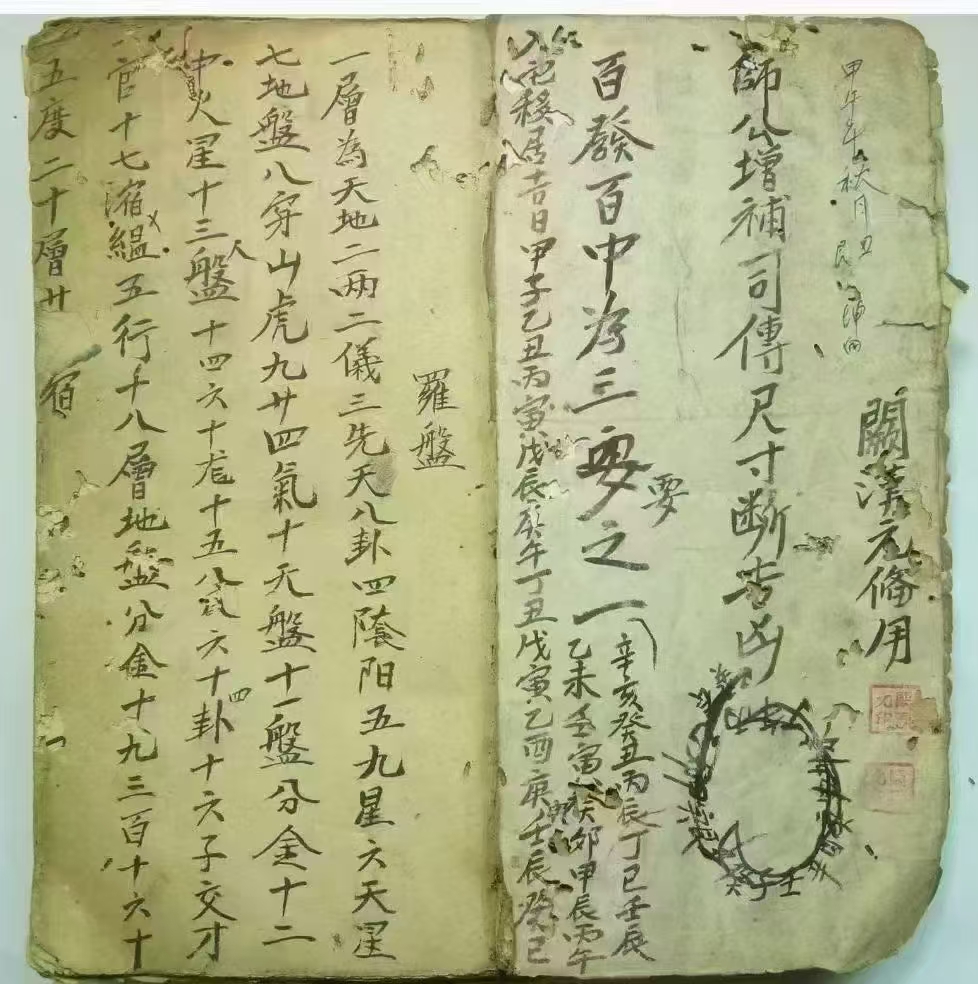 甲午年秋月
關漢元俻用
師公增補司傳尺寸斷吉凶
百發百中為三要之一
要
辛亥癸丑丙辰丁巳壬辰
乙未壬寅癸卯甲辰丙午
入宅移居吉日甲子乙丑丙寅戊辰庚午丁丑戊寅乙酉庚申壬辰癸巳
羅盤
一層為天地二兩二儀三先天八卦四陰阳五九星六天星
七地盤八穿山虎九廿四氣十天盤十一盤分金十二
中火星十三盤人十四六十龙十五八六十四卦十六子交才
官十七縮緼五行十八層地盘分金十九三百十六十
五度二十層廿宿